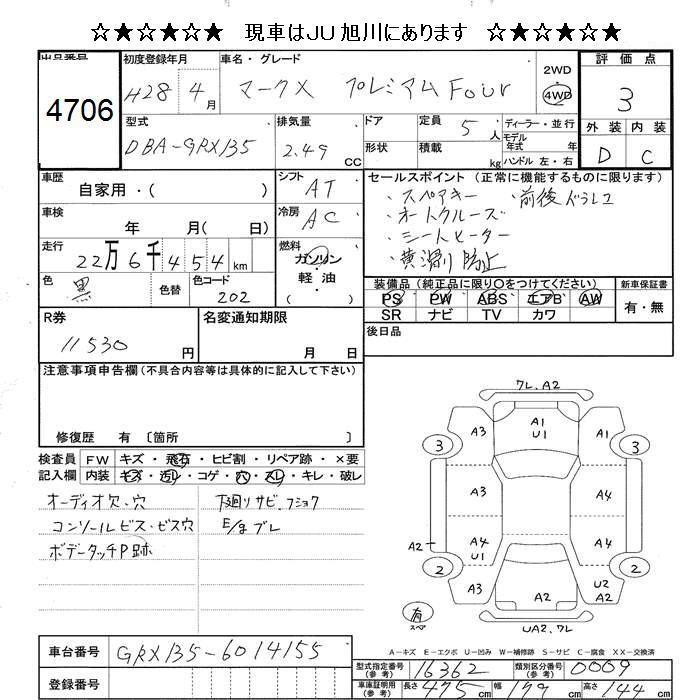 ☆★☆★☆★ 現車はJU旭川にあります ☆★☆★☆★
出品番号 4706
初度登録年月 H28 4月
車名・グレード マークX プレミアム Four
2WD
4WD
評価点 3
外装 D 内装 C
型式 DBA-GRX135
排気量 2.49 CC
ドア
形状
定員 5人
積載 kg
ディーラー・並行
モデル年式 年式
ハンドル 左・右
車歴 自家用・( )
シフト AT
車検 年 月( 日)
冷房 AC
走行 22万6千454km
燃料 ガソリン・軽・油 ( )
色 黒 色替 色コード 202
セールスポイント (正常に機能するものに限ります)
・スペアキー ・前後ドラレコ
・オートクルーズ
・シートヒーター
・黄滑り防止
装備品 (純正品に限り○をつけてください)
PS PW ABS エアB AW
SR ナビ TV カワ
新車保証書 有・無
後日品
R券 11530円
名変通知期限 月 日
注意事項申告欄 (不具合内容等は具体的に記入して下さい)
修復歴 有 〔箇所 〕
検査員記入欄
FW キズ・飛石・ヒビ割・リペア跡・×要
内装 キズ・汚レ・コゲ・穴・スレ・キレ・破レ
オーディオ欠・穴
コンソールビス・ビス穴
ボデータッチP跡
下廻りサビ、フショク
E/gブレ
7L.A2
A3 A1 U1 A3
3 3
A3 A4
A2 A4 U1 A4
2 2
A3 A2 U2 A2
有 スペア
UA2.7L
A-キズ E-エクボ U-凹み W-補修跡 S-サビ C-腐食 XX-交換済
車台番号 GRX135-6014155
登録番号
型式指定番号(参考) 16362
類別区分番号(参考) 0009
車庫証明用(参考) 長さ 475cm 幅 179cm 高さ 144cm